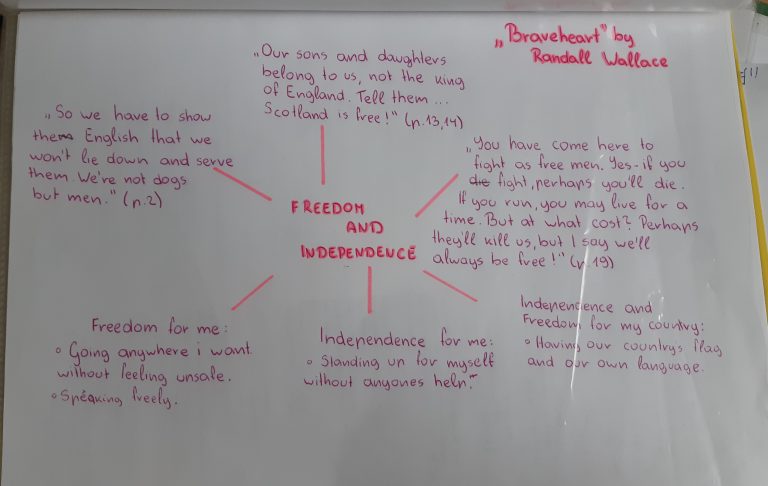 „Braveheart" by
Randall Wallace
„Our sons and daughters
belong to us, not the king
of England. Tell them ...
Scotland is free!" (p.13,14)
„So we have to show
them English that we
won't lie down and serve
them We're not dogs
but men." (p.2)
„You have come here to
fight as free men. Yes-if you
die fight, perhaps you'll die.
If you run, you may live for a
time. But at what cost? Perhaps
they'll kill us, but I say we'll
always be free!" (p.19)
FREEDOM
AND
INDEPENDENCE
Freedom for me:
• Going anywhere i want
without feeling unsafe.
• Speaking freely.
Independence for me:
• Standing up for myself
without anyones help."
Independence and
Freedom for my country:
• Having our countrys flag
and our own language.